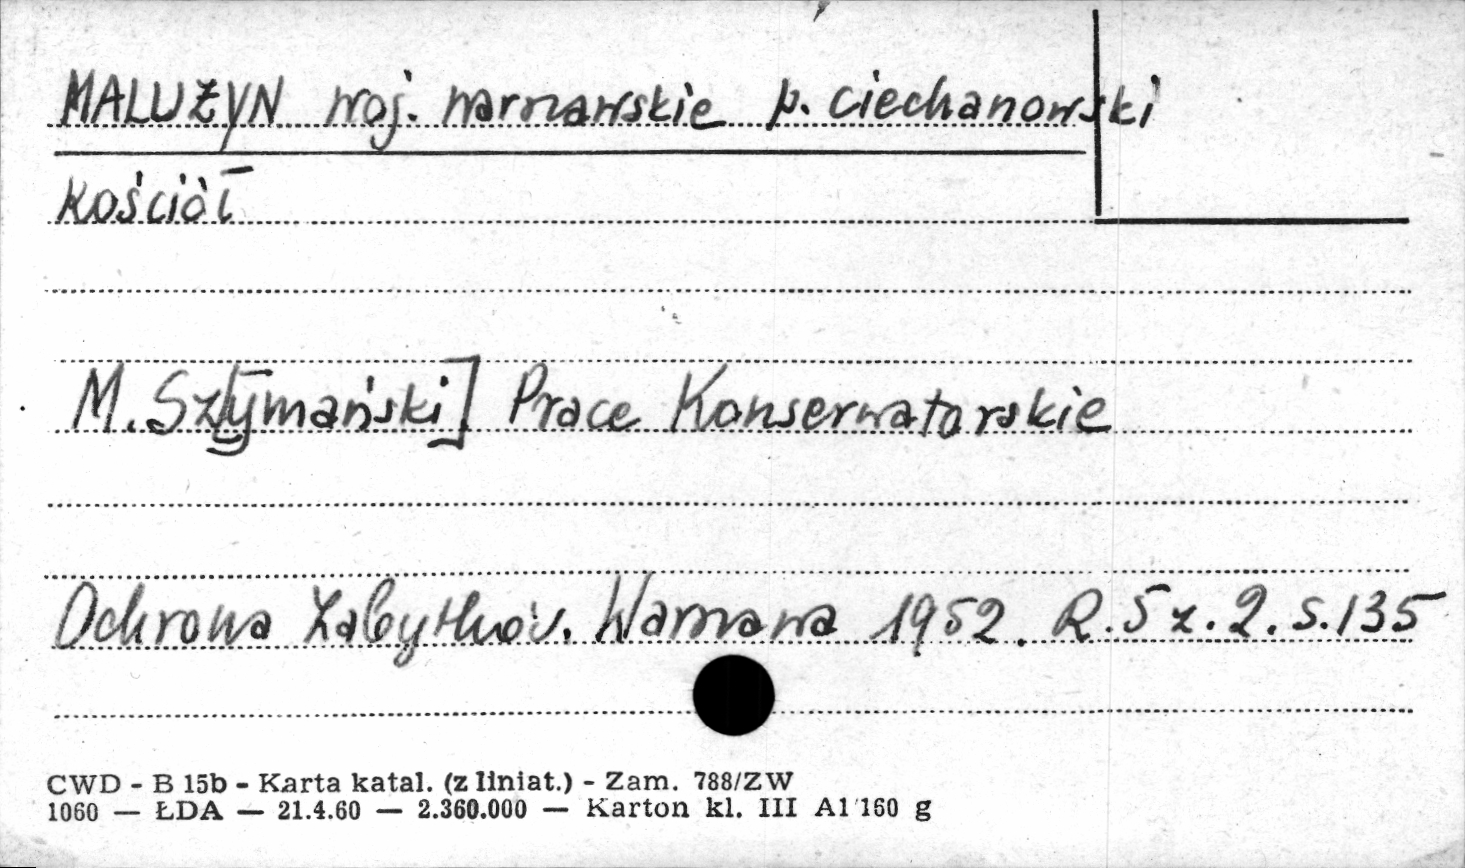 MALUŻYN woj. warszawskie p. ciechanowski
kościół
M. Sz[ymański] Prace Konserwatorskie
Ochrona Zabytków. Warszawa 1952. R. 5 z. 2. s. 135
CWD - B 15b - Karta katal. (z liniat.) - Zam. 788/ZW
1060 — ŁDA — 21.4.60 — 2.360.000 — Karton kl. III A1 160 g